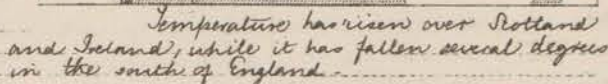 Temperature has risen over Scotland
and Ireland, while it has fallen several degrees
in the south of England.